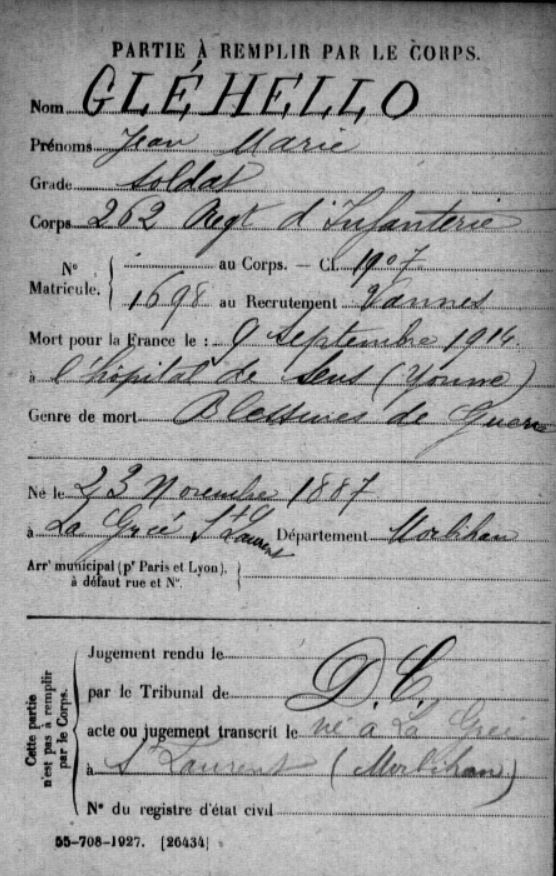 PARTIE À REMPLIR PAR LE CORPS.
Nom GLÉHELLO
Prénoms Jean Marie
Grade soldat
Corps 262 Regt d'Infanterie
N° Matricule. { au Corps. — Cl. 1907
1698 au Recrutement Vannes
Mort pour la France le : 9 Septembre 1914
à l'hôpital de Sens (Yonne)
Genre de mort Blessures de Guerre
Né le 23 Novembre 1887
à La Grée St Laurent Département Morbihan
Arrt municipal (pr Paris et Lyon), à défaut rue et N°. }
Cette partie n'est pas à remplir par le Corps.
Jugement rendu le
par le Tribunal de D.C.
acte ou jugement transcrit le né à La Grée
à St Laurent (Morbihan)
N° du registre d'état civil
55-708-1927. [26434]